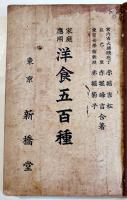 赤堀吉松
赤堀峰吉合著
赤堀菊子
家庭
應用
洋食五百種
東京 新橋堂